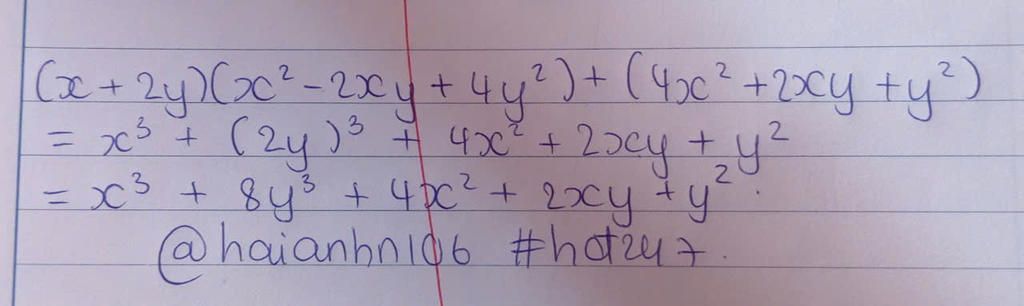 (x + 2y)(x² - 2xy + 4y²) + (4x² + 2xy + y²)
= x³ + (2y)³ + 4x² + 2xy + y²
= x³ + 8y³ + 4x² + 2xy + y².
@haianhn106 #hot247.